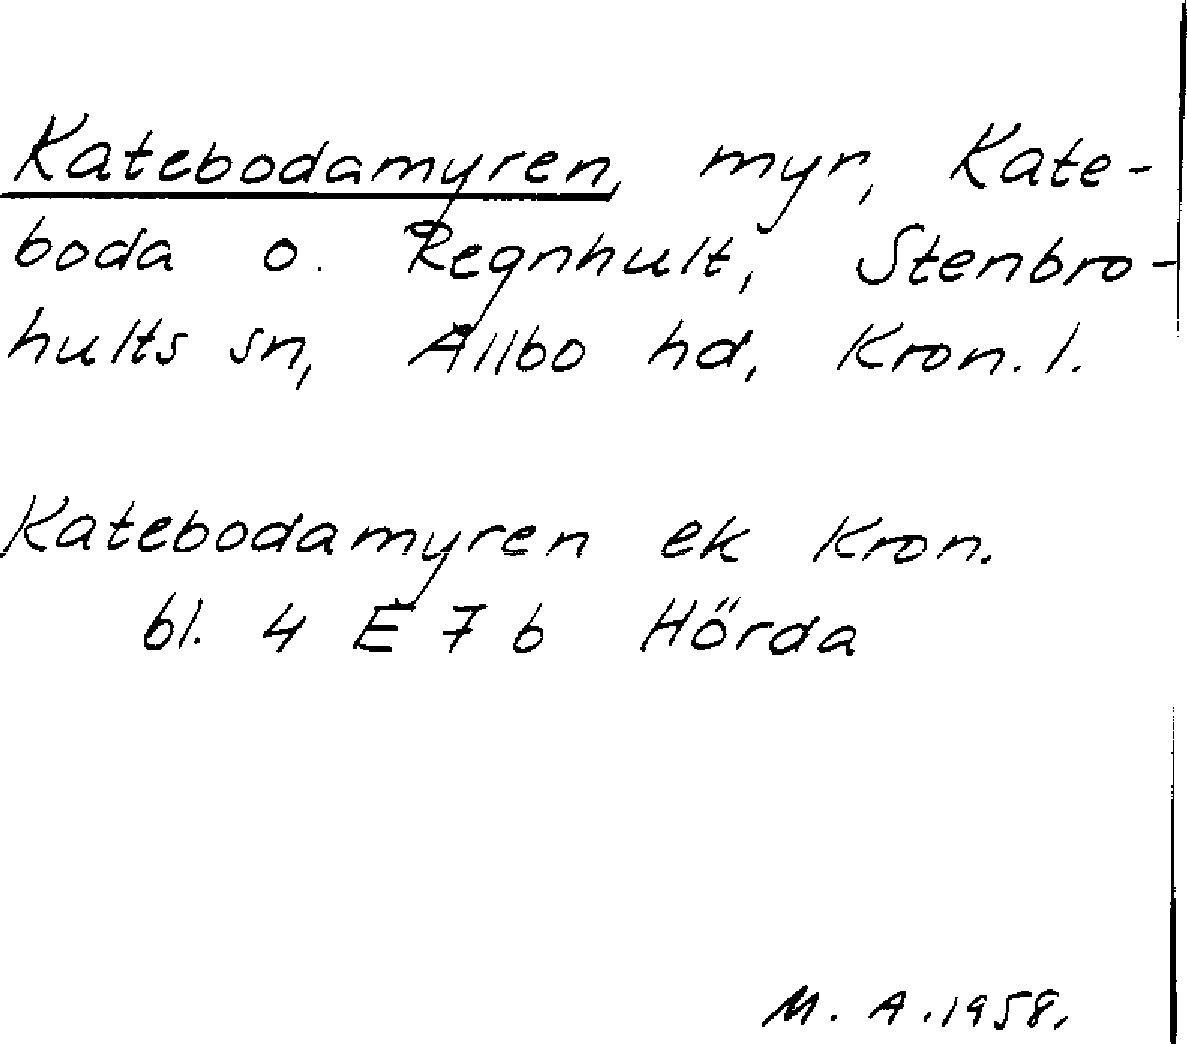 Katebodamyren, myr, Kate-
boda o. Regnhult, Stenbro-
hults sn, Allbo hd, Kron. l.
Katebodamyren ek Kron.
bl. 4 E 7 b Hörda
M. A. 1958.